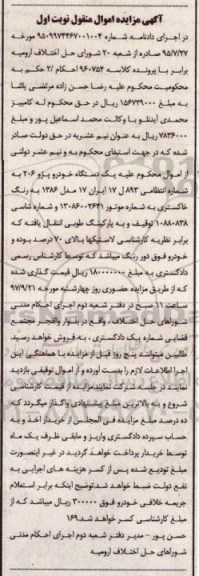 آگهی مزایده اموال منقول نوبت اول
در اجرای دادنامه شماره ۹۵۰۹۹۷۴۴۶۷۰۰۱۰۰۴ مورخه
۹۵/۷/۲۷ صادره از شعبه ۲۰ شورای حل اختلاف ارومیه
برابر با پرونده کلاسه ۹۶۰۷۵۴ احکام /۲ حکم به
محکومیت محکوم علیه رضا حسن زاده مرتضی پاشا
به مبلغ ۱۵۶۷۲۹۰۰۰ ریال در حق محکوم له کامبیز
محمدی آیتلو با وکالت محمد اسماعیل پور و مبلغ
۷۸۳۶۰۰۰ ریال به عنوان نیم عشریه در حق دولت صادر
شده که در جهت استیفای محکوم به و نیم عشر دولتی
از اموال محکوم علیه یک دستگاه خودرو پژو ۲۰۶ به
شماره انتظامی ۸۹۳ ل ۱۷ ایران ۱۷ مدل ۱۳۸۶ به رنگ
خاکستری به شماره موتور ۱۳۰۸۶۰۰۲۶۴۱ و شماره شاسی
۱۰۸۸۰۸۳۸ توقیف و به پارکینگ طوبی انتقال یافته که
برابر نظریه کارشناسی لاستیکها بالای ۷۰ درصد بوده و
خودرو فوق دور رنگ میباشد که توسط کارشناس رسمی
دادگستری به مبلغ ۱۸۰۰۰۰۰۰۰ ریال قیمت گذاری شده
که از طریق مزایده حضوری روز چهارشنبه مورخه ۹۷/۹/۲۱
ساعت ۱۱ صبح در دفتر شعبه دوم اجرای احکام مدنی
شوراهای حل اختلاف، واقع در بلوار والفجر مجتمع
قضایی شماره یک دادگستری، به فروش خواهد رسید
طالبین میتوانند پنج روز قبل از مزایده با هماهنگی این
اجرا اطلاعات لازم را بدست آورده و از اموال توقیفی بازدید
نمایند در جلسه شرکت نمایند مزایده از قیمت کارشناسی
شروع و به بالاترین مبلغ پیشنهادی واگذار میگردد که
ده درصد مبلغ مزایده فی المجلس از خریدار اخذ و به
حساب سپرده دادگستری واریز و مابقی ظرف یک ماه
توسط خریدار پرداخت خواهد گردید در غیر اینصورت
مبلغ تودیع شده پس از کسر هزینه های اجرایی به
نفع دولت ضبط خواهد شد. توضیح اینکه برابر استعلام
جریمه خلافی خودرو فوق ۳۰۰۰۰۰ ریال میباشد که از
مبلغ کارشناسی کسر خواهد شد. ۱۶۹
حسن پور - مدیر دفتر شعبه دوم اجرای احکام مدنی
شوراهای حل اختلاف ارومیه